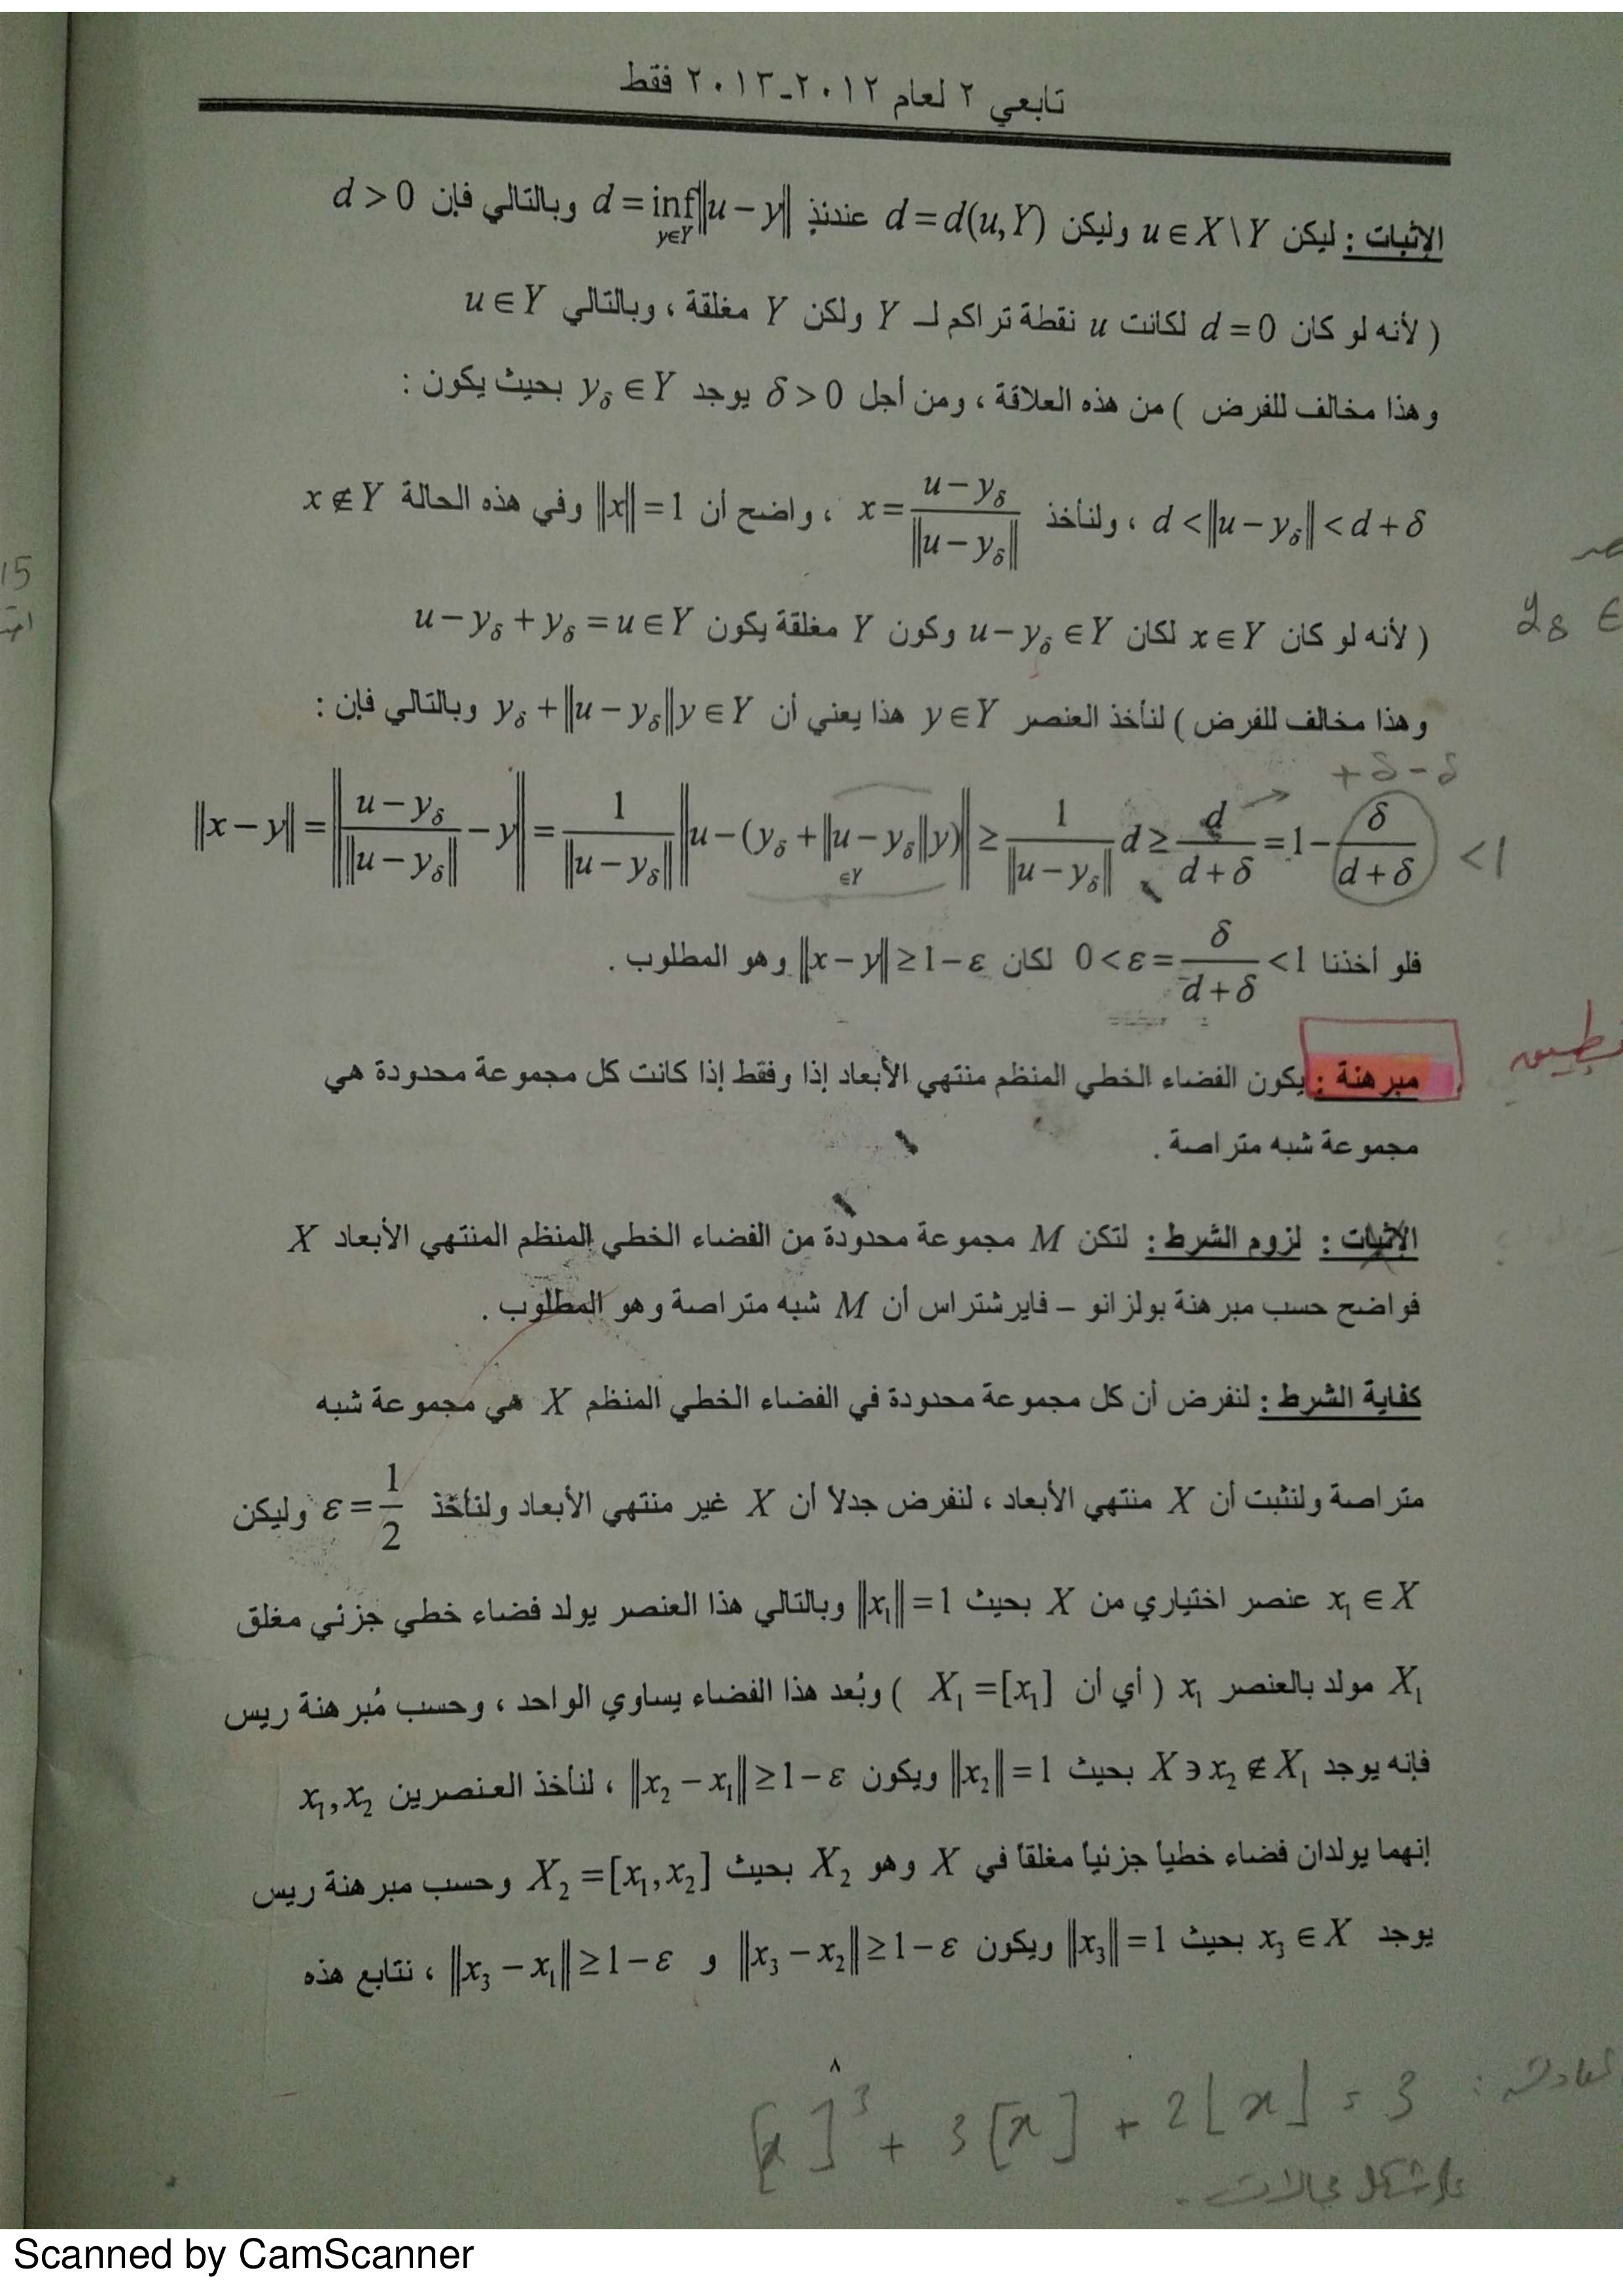 تابعي ٢ لعام ٢٠١٢-٢٠١٣ فقط
الإثبات : ليكن u ∈ X \ Y وليكن d = d(u,Y) عندئذٍ d = inf_{y∈Y} ||u − y|| وبالتالي فإن d > 0
( لأنه لو كان d = 0 لكانت u نقطة تراكم لـ Y ولكن Y مغلقة ، وبالتالي u ∈ Y
وهذا مخالف للفرض ) من هذه العلاقة ، ومن أجل δ > 0 يوجد y_δ ∈ Y بحيث يكون :
d < ||u − y_δ|| < d + δ ، ولنأخذ x = (u − y_δ)/||u − y_δ|| ، واضح أن ||x|| = 1 وفي هذه الحالة x ∉ Y
15
y_δ ∈
( لأنه لو كان x ∈ Y لكان u − y_δ ∈ Y وكون Y مغلقة يكون u − y_δ + y_δ = u ∈ Y
وهذا مخالف للفرض ) لنأخذ العنصر y ∈ Y هذا يعني أن y_δ + ||u − y_δ||y ∈ Y وبالتالي فإن :
+ δ − δ
||x − y|| = ||(u − y_δ)/||u − y_δ|| − y|| = 1/||u − y_δ|| ||u − (y_δ + ||u − y_δ||y)|| ≥ 1/||u − y_δ|| d ≥ d/(d + δ) = 1 − δ/(d + δ) < 1
∈Y
فلو أخذنا 0 < ε = δ/(d + δ) < 1 لكان ||x − y|| ≥ 1 − ε وهو المطلوب .
تطبيق
مبرهنة : يكون الفضاء الخطي المنظم منتهي الأبعاد إذا وفقط إذا كانت كل مجموعة محدودة هي
مجموعة شبه متراصة .
الإثبات : لزوم الشرط : لتكن M مجموعة محدودة من الفضاء الخطي المنظم المنتهي الأبعاد X
فواضح حسب مبرهنة بولزانو – فايرشتراس أن M شبه متراصة وهو المطلوب .
كفاية الشرط : لنفرض أن كل مجموعة محدودة في الفضاء الخطي المنظم X هي مجموعة شبه
متراصة ولنثبت أن X منتهي الأبعاد ، لنفرض جدلا أن X غير منتهي الأبعاد ولنأخذ ε = 1/2 وليكن
x₁ ∈ X عنصر اختياري من X بحيث ||x₁|| = 1 وبالتالي هذا العنصر يولد فضاء خطي جزئي مغلق
X₁ مولد بالعنصر x₁ ( أي أن X₁ = [x₁] ) وبُعد هذا الفضاء يساوي الواحد ، وحسب مُبرهنة ريس
فإنه يوجد X ∋ x₂ ∉ X₁ بحيث ||x₂|| = 1 ويكون ||x₂ − x₁|| ≥ 1 − ε ، لنأخذ العنصرين x₁, x₂
إنهما يولدان فضاء خطياً جزئياً مغلقاً في X وهو X₂ بحيث X₂ = [x₁, x₂] وحسب مبرهنة ريس
يوجد x₃ ∈ X بحيث ||x₃|| = 1 ويكون ||x₃ − x₂|| ≥ 1 − ε و ||x₃ − x₁|| ≥ 1 − ε ، نتابع هذه
٨
[x]³ + 3[x] + 2[x] = 3
شكل مجالات .
Scanned by CamScanner